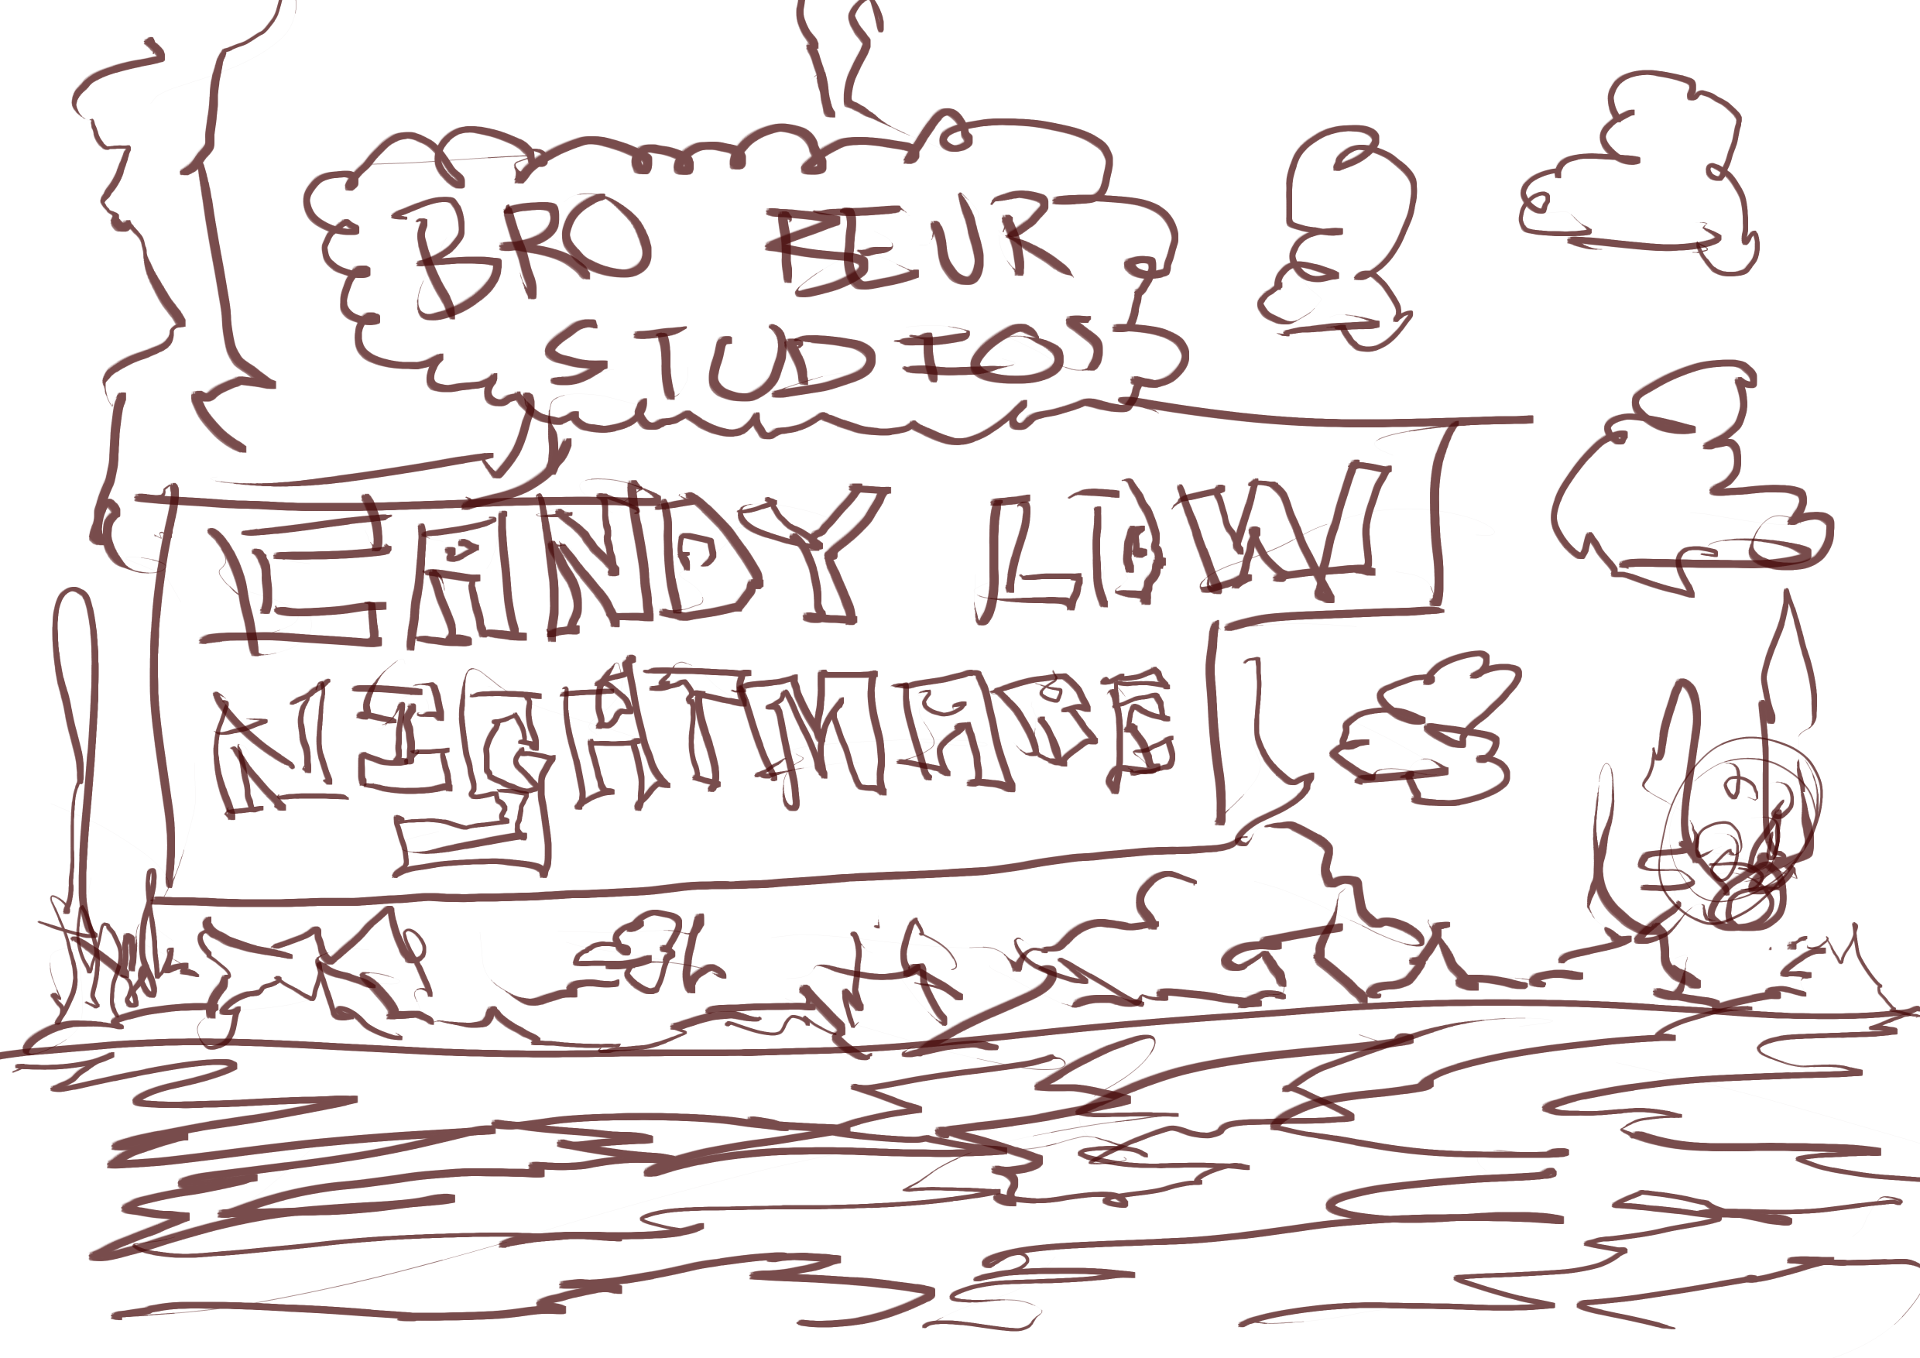 BRO BEUR
STUDIOS
CANDY LOW
NIGHTMARE